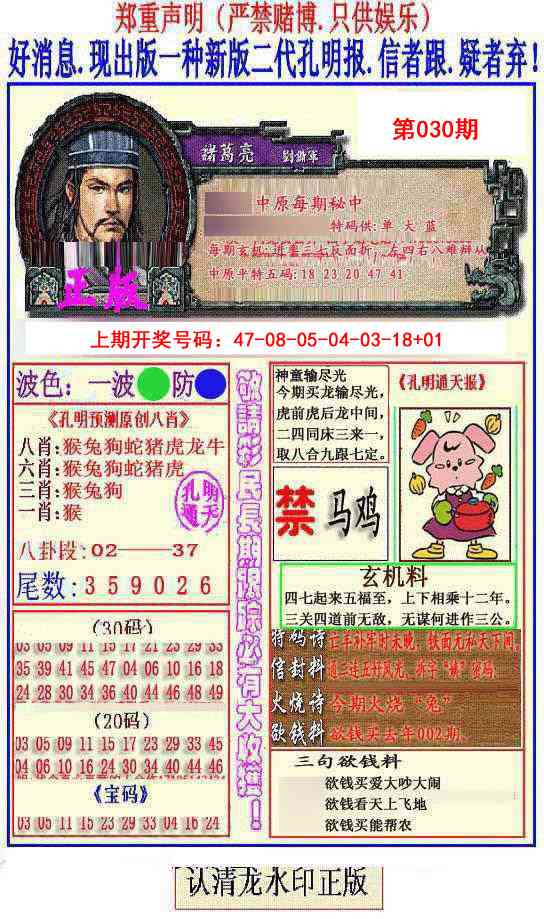 郑重声明（严禁赌博.只供娱乐）
好消息.现出版一种新版二代孔明报.信者跟.疑者弃！
第030期
諸葛亮
劉備軍
中原每期秘中
特码供:单 大 蓝
每期玄机:
左四右八难辩从
中原平特五码:18 23 20 47 41
正版
上期开奖号码：47-08-05-04-03-18+01
波色：一波 防
《孔明预测原创八肖》
八肖:猴兔狗蛇猪虎龙牛
六肖:猴兔狗蛇猪虎
三肖:猴兔狗
一肖:猴
孔明
通天
八卦段:02——37
尾数:359026
敬請彩民長期跟踪必有大收獲！
神童输尽光
今期买龙输尽光,
虎前虎后龙中间,
二四同床三来一,
取八合九跟七定。
《孔明通天报》
禁
马鸡
玄机料
四七起来五福至，上下相乘十二年。
三关四道前无敌，无谋何进作三公。
(30码)
03 05 09 11 15 16 17 23 29 33
35 39 41 45 47 04 06 10 16 18
24 28 30 34 36 40 44 46 48 49
(20码)
03 05 09 11 15 17 23 29 33 45
04 06 10 16 24 30 34 40 44 46
《宝码》
03 05 11 15 23 29 33 04 16 24
特码诗
亡羊补牢时未晚，铁面无私天下闻
信封料
火烧诗
今期火烧“兔”
欲钱料
欲钱买去年002期.
三句欲钱料
欲钱买爱大吵大闹
欲钱看天上飞地
欲钱买能帮农
认清龙水印正版